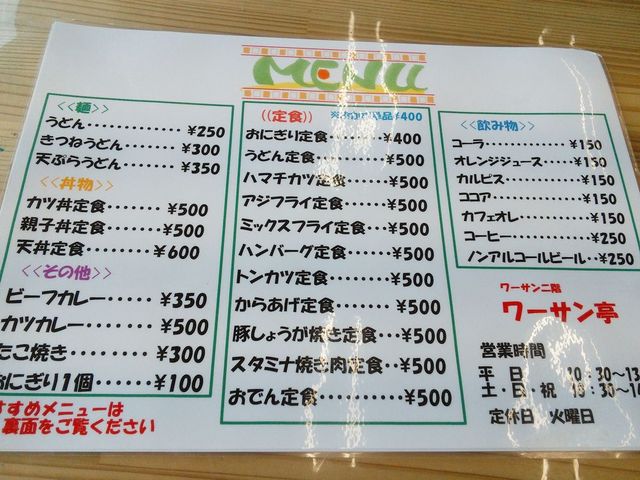 MENU
<<麺>>
うどん・・・・・・・・・・・・¥250
きつねうどん・・・・・¥300
天ぷらうどん・・・・・¥350
<<丼物>>
カツ丼定食・・・・・・¥500
親子丼定食・・・・・・¥500
天丼定食・・・・・・・¥600
<<その他>>
ビーフカレー・・・・・・¥350
カツカレー・・・・・・・¥500
たこ焼き・・・・・・・・¥300
おにぎり1個・・・・・・¥100
すすめメニューは
裏面をご覧ください
((定食))
品¥400
おにぎり定食・・・・・¥400
うどん定食・・・・・・・¥500
ハマチカツ定食・・・・¥500
アジフライ定食・・・・¥500
ミックスフライ定食・・¥500
ハンバーグ定食・・・・¥500
トンカツ定食・・・・・・¥500
からあげ定食・・・・・・¥500
豚しょうが焼き定食・・¥500
スタミナ焼き肉定食・・¥500
おでん定食・・・・・・・¥500
<<飲み物>>
コーラ・・・・・・・・・¥150
オレンジジュース・・・・¥150
カルピス・・・・・・・・¥150
ココア・・・・・・・・・¥150
カフェオレ・・・・・・・¥150
コーヒー・・・・・・・・¥250
ノンアルコールビール・・¥250
ワーサン二階
ワーサン亭
営業時間
平 日 10:30~13
土・日・祝 10:30~14
定休日 火曜日